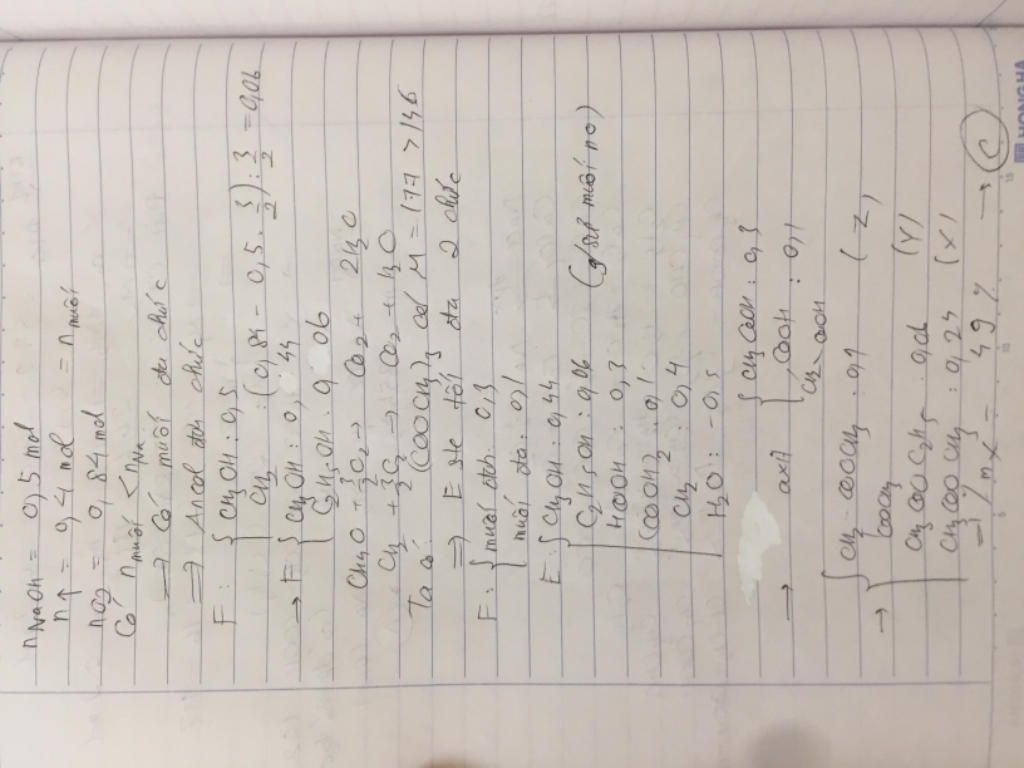 nNaOH = 0,5 mol
n↑ = 0,4 mol = nmuối
nO2 = 0,84 mol
Có nmuối < nNa
=> Có muối đa chức
=> Ancol đơn chức
F: { CH3OH : 0,5
CH2 : (0,84 - 0,5 . 3/2) : 3/2 = 0,06
→ F: { CH3OH : 0,44
C2H5OH : 0,06
CH4O + 3/2 O2 → CO2 + 2H2O
CH2 + 3/2 O2 → CO2 + H2O
Ta có (COOCH3)3 có M = 177 > 146
=> Este tối đa 2 chức
F: { muối đơn 0,3
muối đa : 0,1
E: { CH3OH : 0,44
C2H5OH : 0,06
HCOOH : 0,3 muối no)
(COOH)2 : 0,1
CH2 : 0,4
H2O : -0,5
→ axit { CH3COOH : 0,3
COOH : 0,1
CH2-COOH
→ { CH2-COOCH3 : 0,1 (Z)
COOCH3
CH3COOC2H5 : 0,06 (Y)
CH3COOCH3 : 0,24 (X)
=> %mX = 49% → (C)
HONG HA